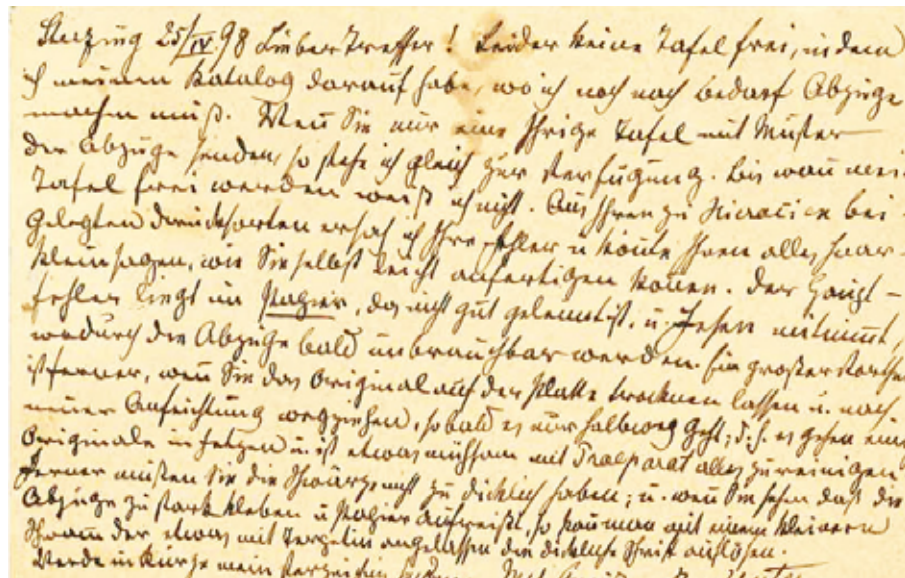 Sterzing 25/IV.98 Lieber Treffer! Leider keine Tafel frei, indem
ich meinen Katalog darauf habe, wo ich noch nach Bedarf Abzüge
machen muß. Wenn Sie mir eine Ihrige Tafel mit Muster
der Abzüge senden, so stehe ich gleich zur Verfügung. Bis wann mei-
Tafel frei werden weiß ich nicht. Aus Ihren zu Hieracien bei-
gelegten Drucksorten ersah ich Ihre Fehler u könnte Ihnen alles haar-
klein sagen, wie Sie selbst leicht anfertigen können. Der Haupt-
fehler liegt im Papier, das nicht gut geleimt ist, u. Fasern mitnimmt,
wodurch die Abzüge bald unbrauchbar werden. Ein großer
ist ferner, wenn Sie das Original auf der Platte trocknen lassen u. nach
neuer Anfeuchtung wegziehen, sobald es nur halbweg geht; d.h. es gehen eine
Originale in Fetzen u. ist etwas mühsam mit Praeparat alles zu reinigen
Ferner müßen Sie die Schwärze nicht zu dicklich haben; u. wenn Sie sehen daß die
Abzüge zu stark kleben u Papier aufreißt, so kann man mit einem kleinern
Schwamm der etwas mit angelassen die dickliche Schrift auflösen.
Werde in Kürze mein Verzeichn senden.